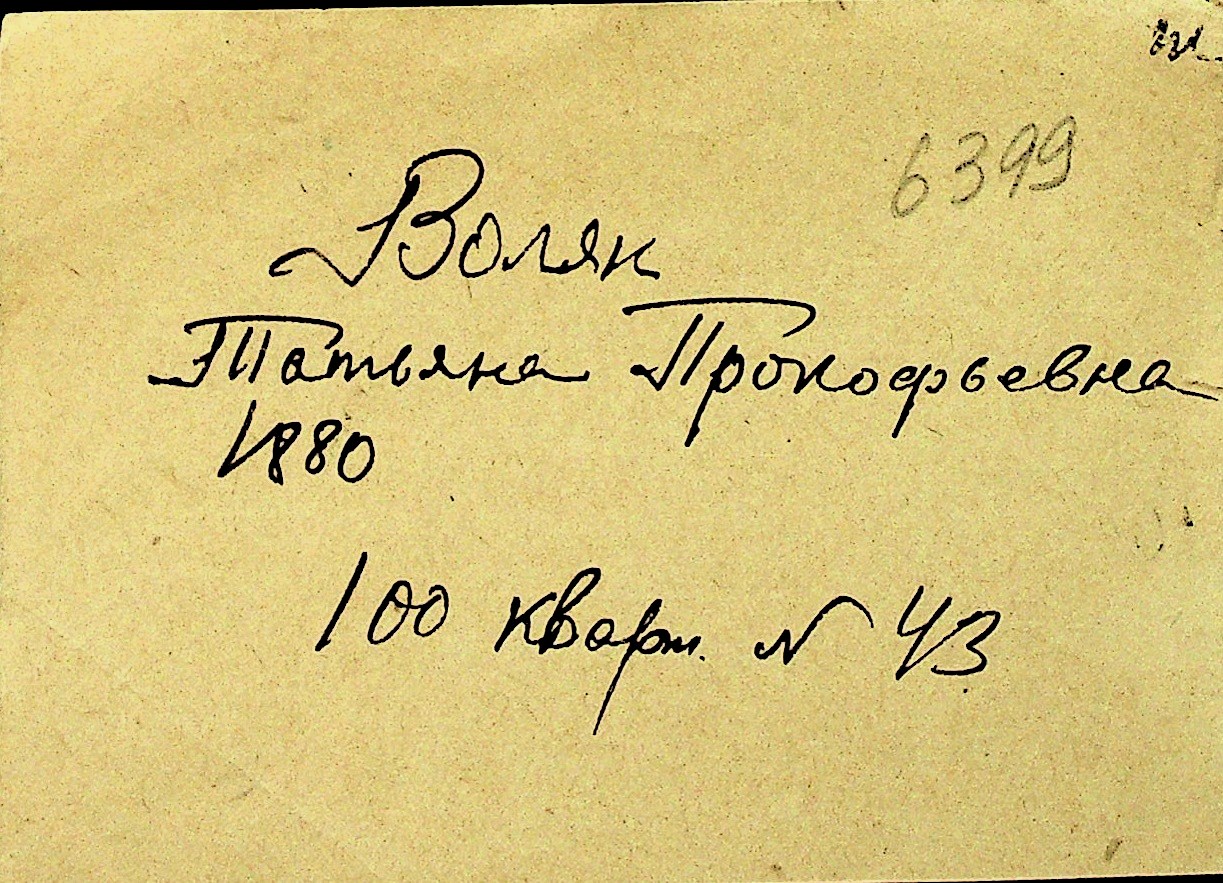 6399
Воляк
Татьяна Прокофьевна
1880
100 кварт. N 43